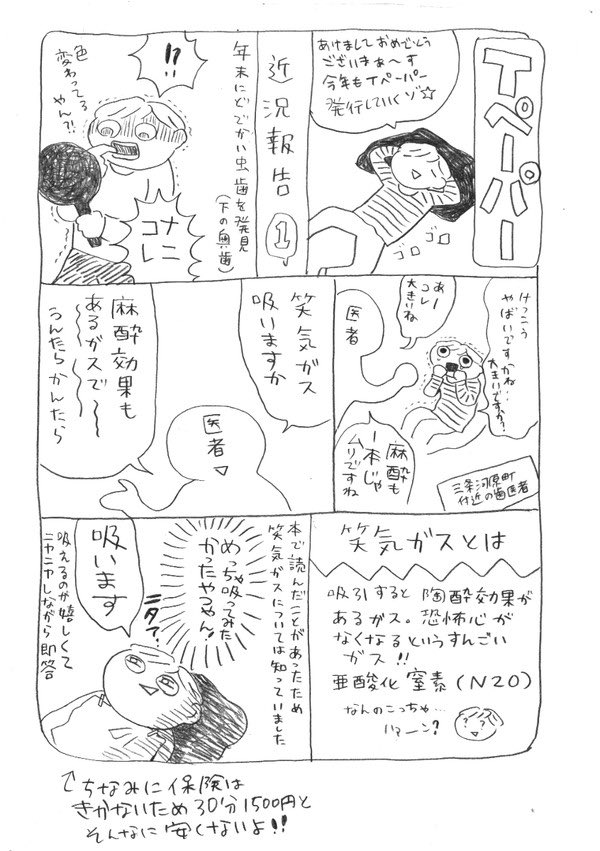 Tペーパー
あけましておめでとう
ございまぁ〜す
今年もTペーパー
発行していくゾ☆
ゴロ
ゴロ
近況報告①
年末にどでかい虫歯を発見
(下の奥歯)
!?
色
変わってる
やん?!
ナニ
コレ
けっこう
やばいですかね…
大きいですか?
あー
コレ
大きいね
医者
麻酔も
一本じゃ
ムリですね
三条河原町
付近の歯医者
笑気ガス
吸いますか
医者
麻酔効果も
あるガスで〜
うんたらかんたら
笑気ガスとは
吸引すると陶酔効果が
あるガス。恐怖心が
なくなるというすんごい
ガス!!
亜酸化窒素(N2O)
なんのこっちゃ…
ハァーン?
??
本で読んだことがあったため
笑気ガスについては知っていました
めっちゃ吸ってみた
かったやつやん!
ニタァ?
吸います
吸えるのが嬉しくて
ニヤニヤしながら即答
↑ちなみに保険は
きかないため30分1500円と
そんなに安くないよ!!